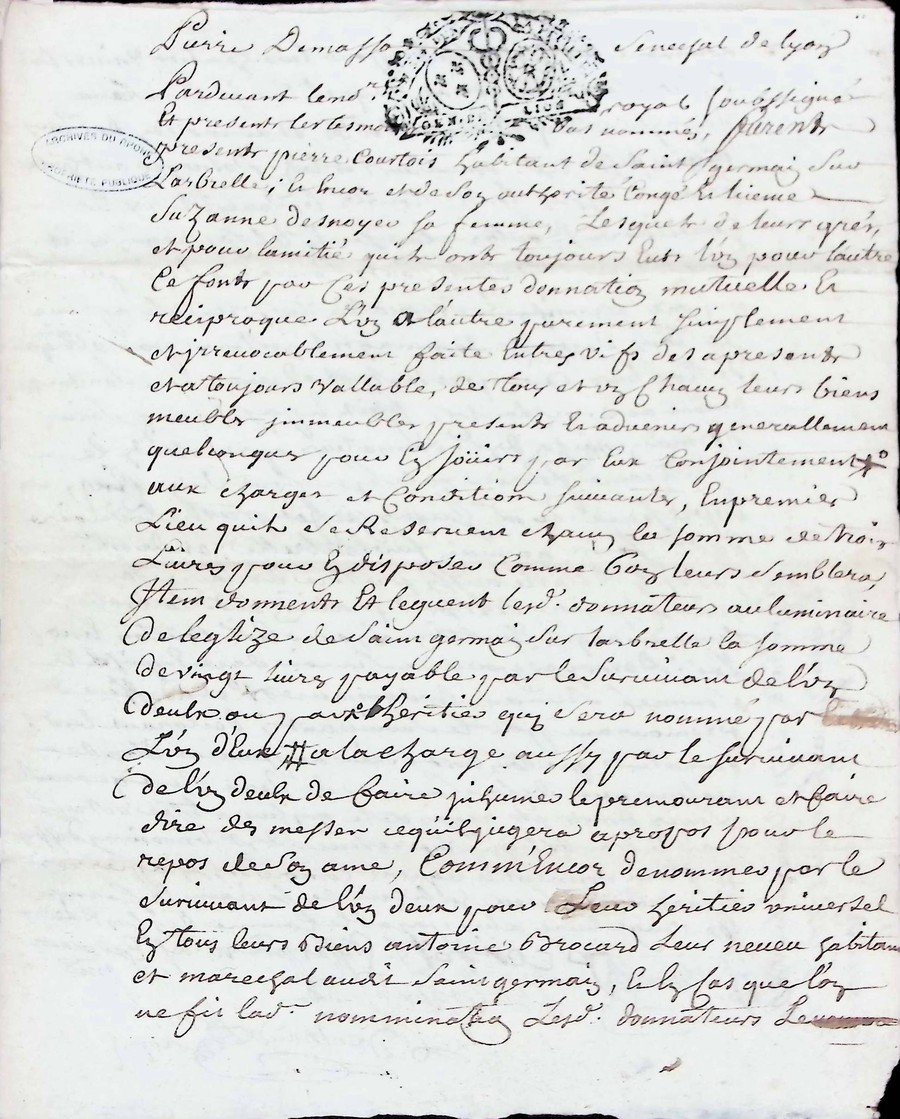 Pierre Demasso Senechal de Lyon
Pardevant le nore. royal soussigné
Et presents les tesmoins bas nommés, furent
ARCHIVES DU RHONE
PROPRIETE PUBLIQUE
GEN. DE LION
presents pierre Courtois habitant de Saint germain Sur
Larbrelle, Et Encor et de Son authorité Congé Et licence
Suzanne desnoyer sa femme, Lesquels de leurs grés,
et pour lamitié quils onts toujours Eute l'un pour lautre
Ce fonts par Ces presentes donnation mutuelle Et
reciproque L'un a l'autre purement simplement
et jrrevocablement faite Entres vifs des apresents
et a toujours vallable, de tous et un Chacun leurs biens
meubles jmmeubles presents Et advenirs generallement
quelconques pour En joüirs par Eux Conjointement
aux charges et Condition suivantes, En premier
Lieu quils se Reservent chacun la somme de trois
Livres pour En disposer Comme bon leurs semblera,
Jtem donnents Et leguent lesd. donnateurs au luminaire
de leglize de Saint germain Sur larbrelle la somme
de vingt livres payable par le Survivant de l'un
deulx ou par l'héritier quj sera nommé par
L'un d'Eux a la charge aussy par le survivant
de l'un deulx de faire jnhumer le premourant et faire
dire des messes ce quil jugera a propos pour le
repos de Son ame, Comm'Encor de nommer par le
survivant de l'un deux pour Leur héritier universel
En tous leurs Biens antoine Brocard Leur neveu habitant
et marechal audit Saint germain, Et En Cas que l'on
ne fit lad. nommination Lesd. donnateurs